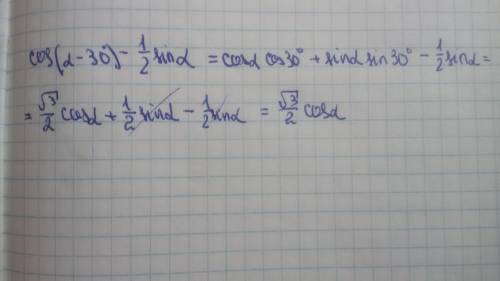 cos(α-30°) - 1/2 sinα = cosα cos30° + sinα sin30° - 1/2 sinα =
= √3/2 cosα + 1/2 sinα - 1/2 sinα = √3/2 cosα